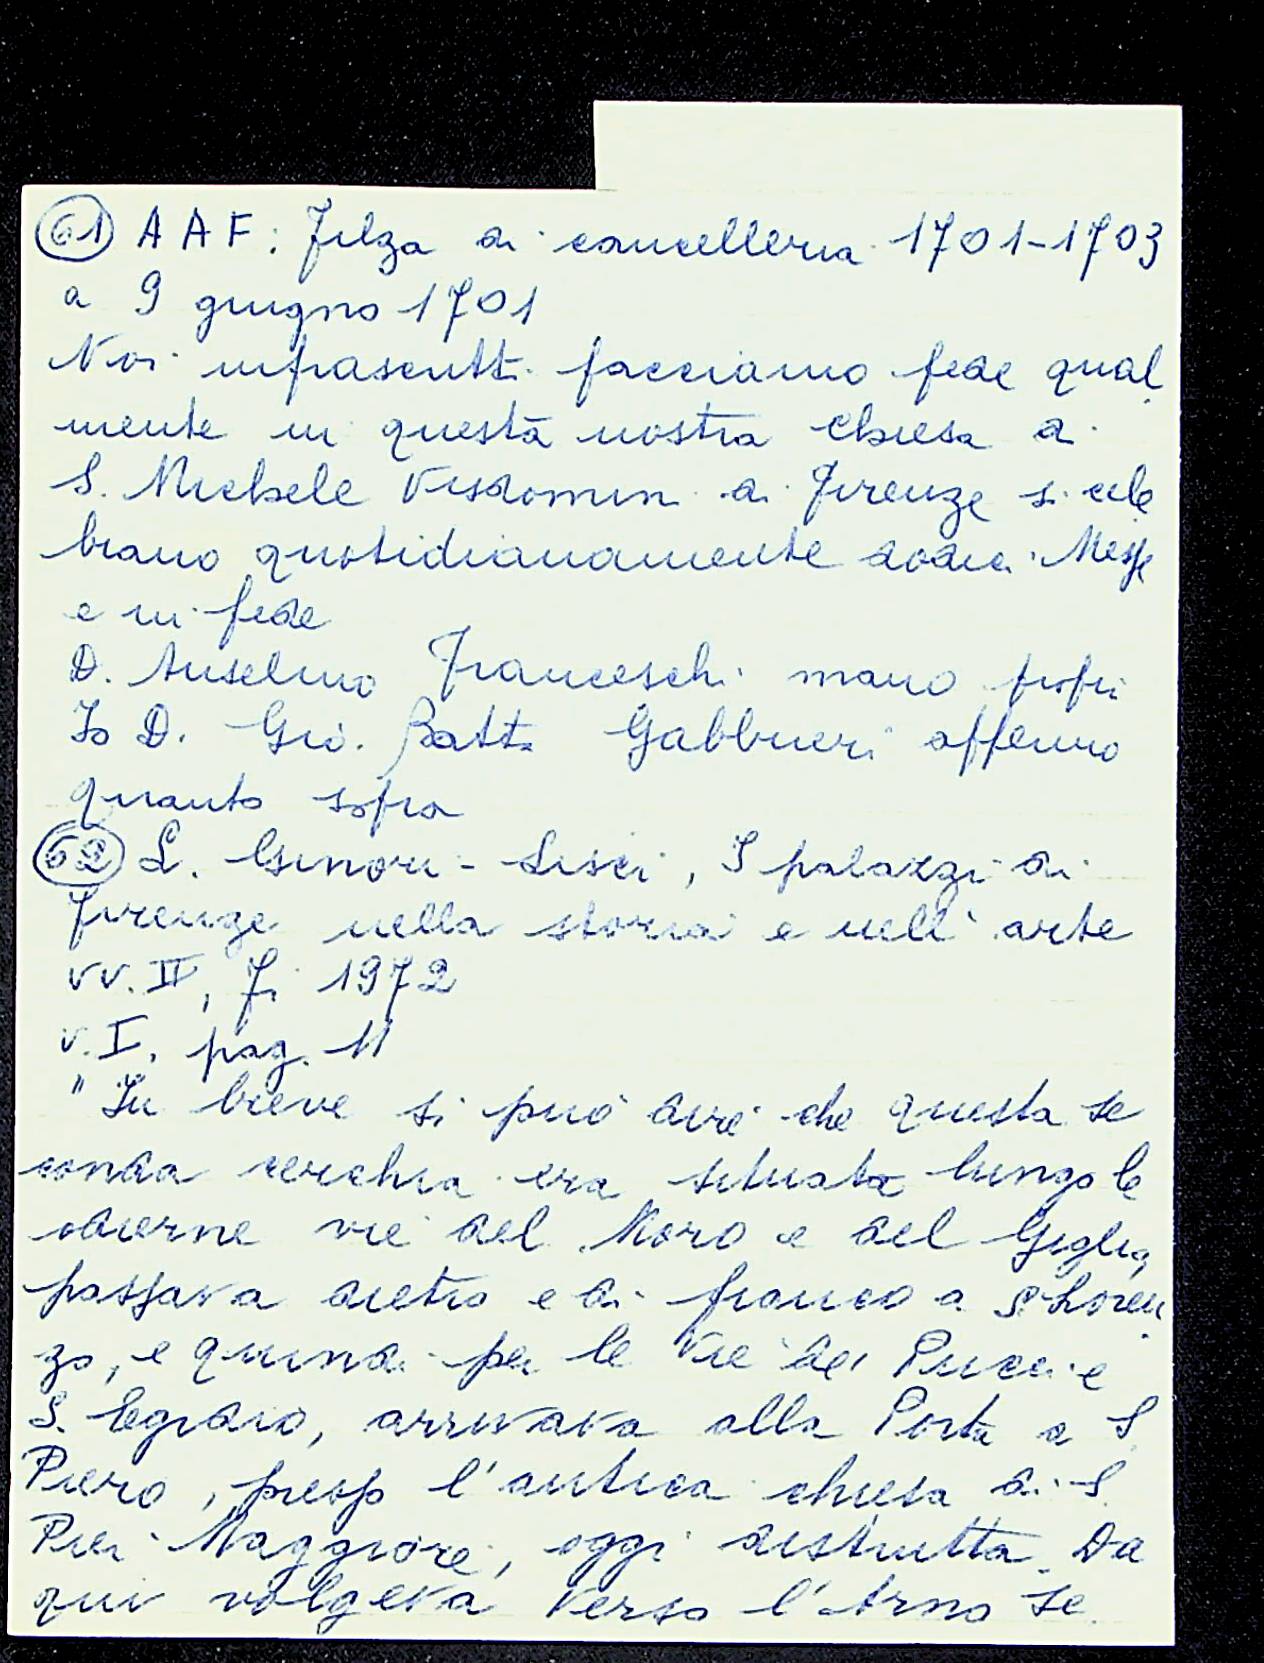 61 A A F: Filza di cancelleria 1701-1703
a 9 giugno 1701
Noi infrascritti facciamo fede qual
mente in questa nostra chiesa di
S. Michele Visdomini di Firenze si cele
brano quotidianamente dodici Messe
e in fede
D. Anselmo Franceschi mano propri
Io D. Gio. Batt. Gabbrieri affermo
quanto sopra
62 L. Ginori-Lisci, I palazzi di
Firenze nella storia e nell'arte
vv. II, Fi 1972
v. I, pag. 11
"In breve si può dire che questa se
conda cerchia era situata lungo le
odierne vie del Moro e del Giglio,
passava dietro e di fianco a S. Loren
zo, e quindi per le Vie de' Pucci e
S. Egidio, arrivava alla Porta a S.
Piero, presso l'antica chiesa di S.
Pier Maggiore, oggi distrutta. Da
qui volgeva verso l'Arno se